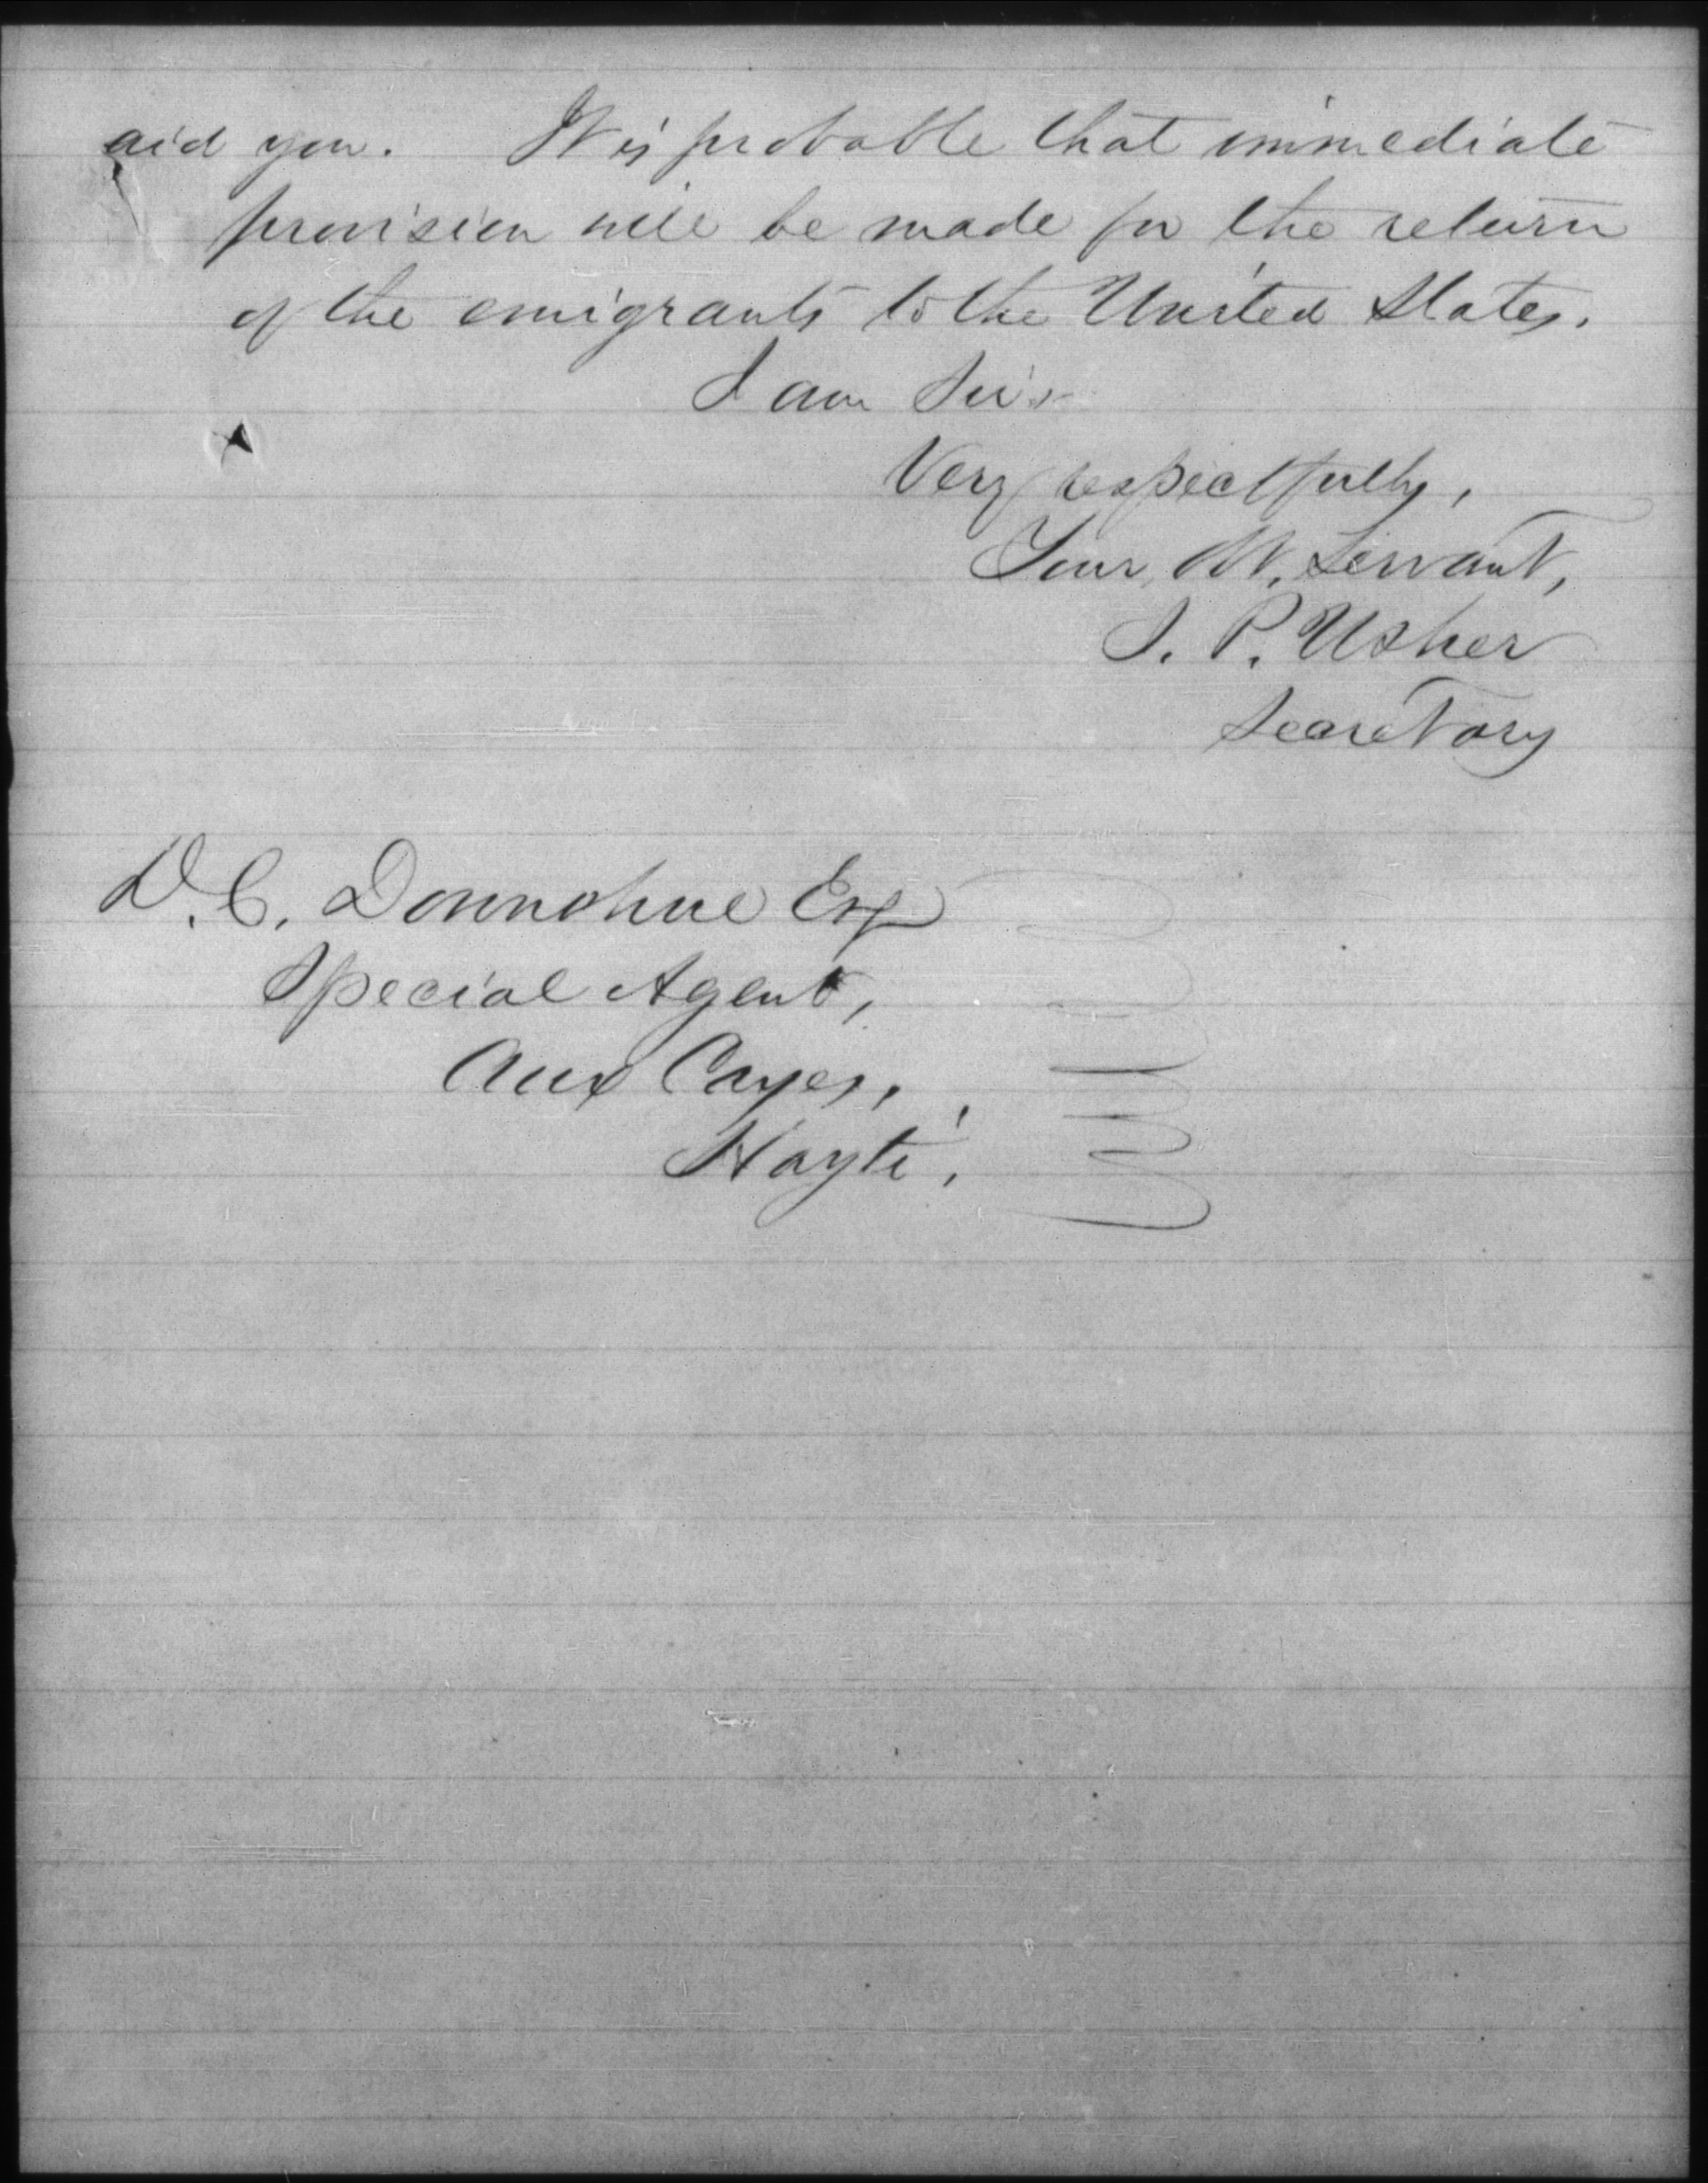 aid you. It is probable that immediate
provision will be made for the return
of the emigrants to the United States.
I am Sir
Very respectfully,
Your Ob. Servant,
J. P. Usher
Secretary
D. C. Donnohue Esq
Special Agent,
Aux Cayes,
Hayti.